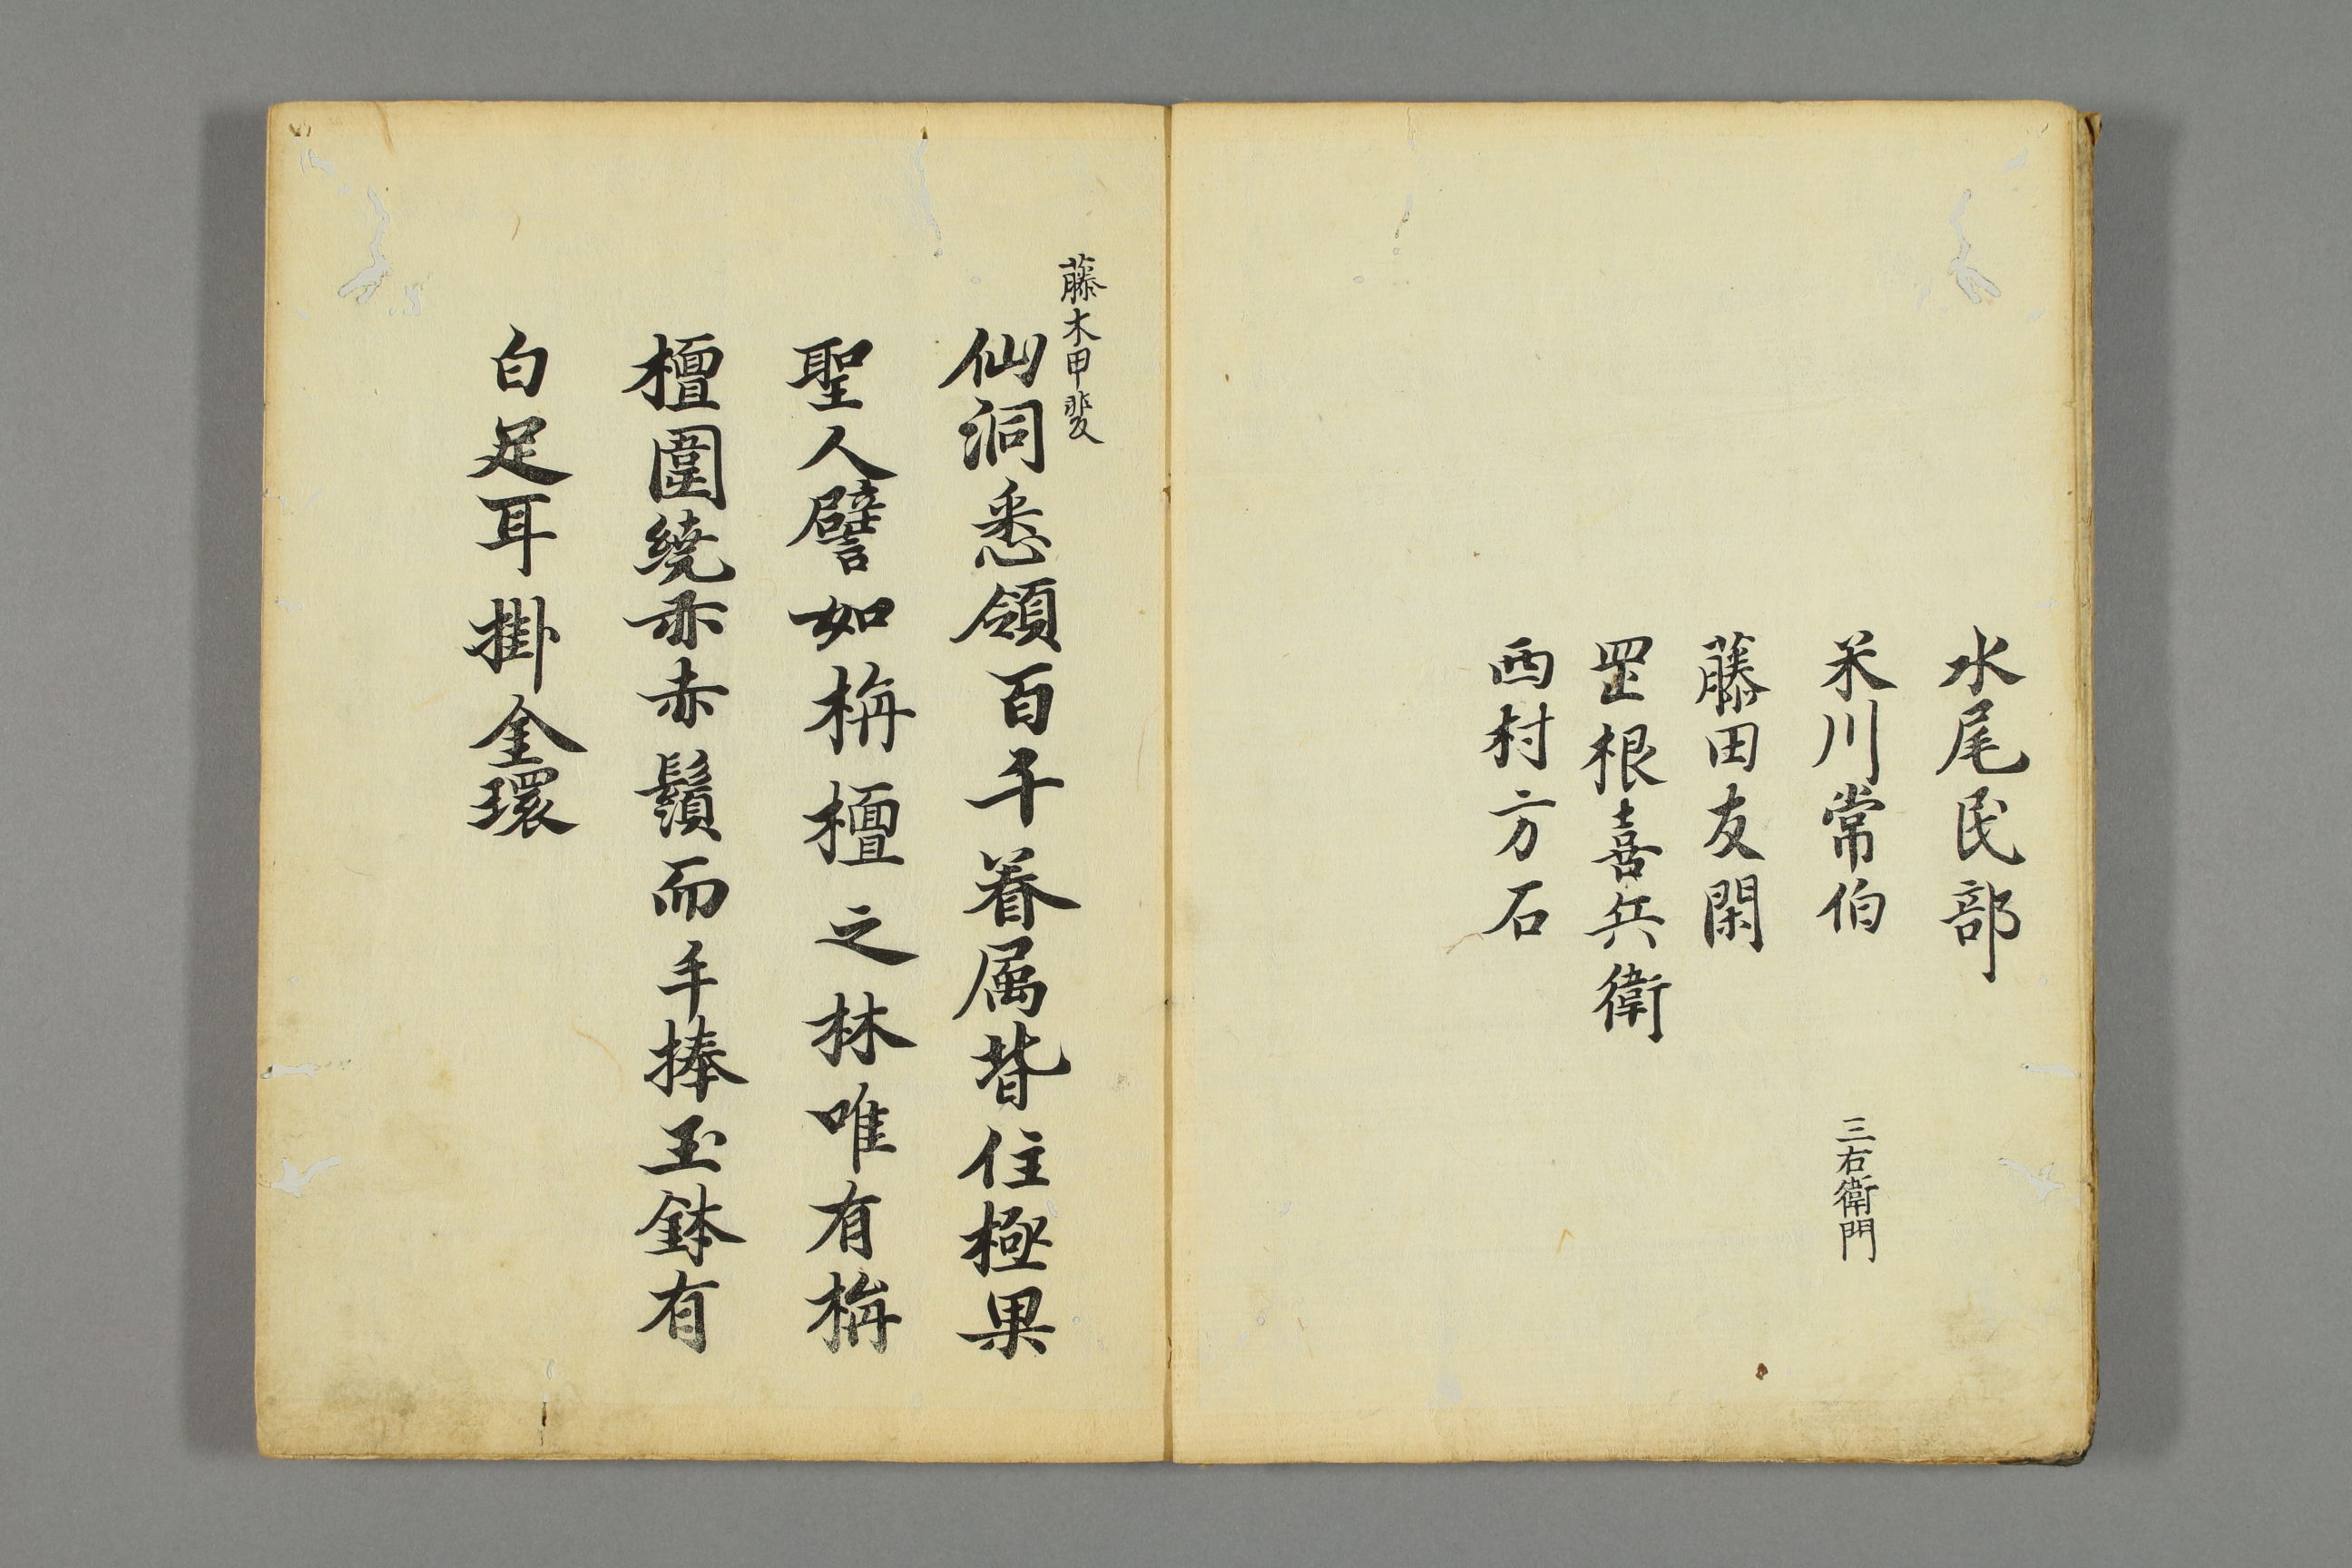 水尾民部
米川常伯
三右衛門
藤田友閑
罡根喜兵衛
西村方石
藤木甲斐
仙洞悉領百千眷属皆住極果
聖人譬如栴檀之林唯有栴
檀圍繞亦赤鬚而手捧玉鉢有
白足耳掛金環